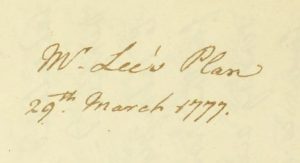 Mr. Lee's Plan
29th. March 1777.